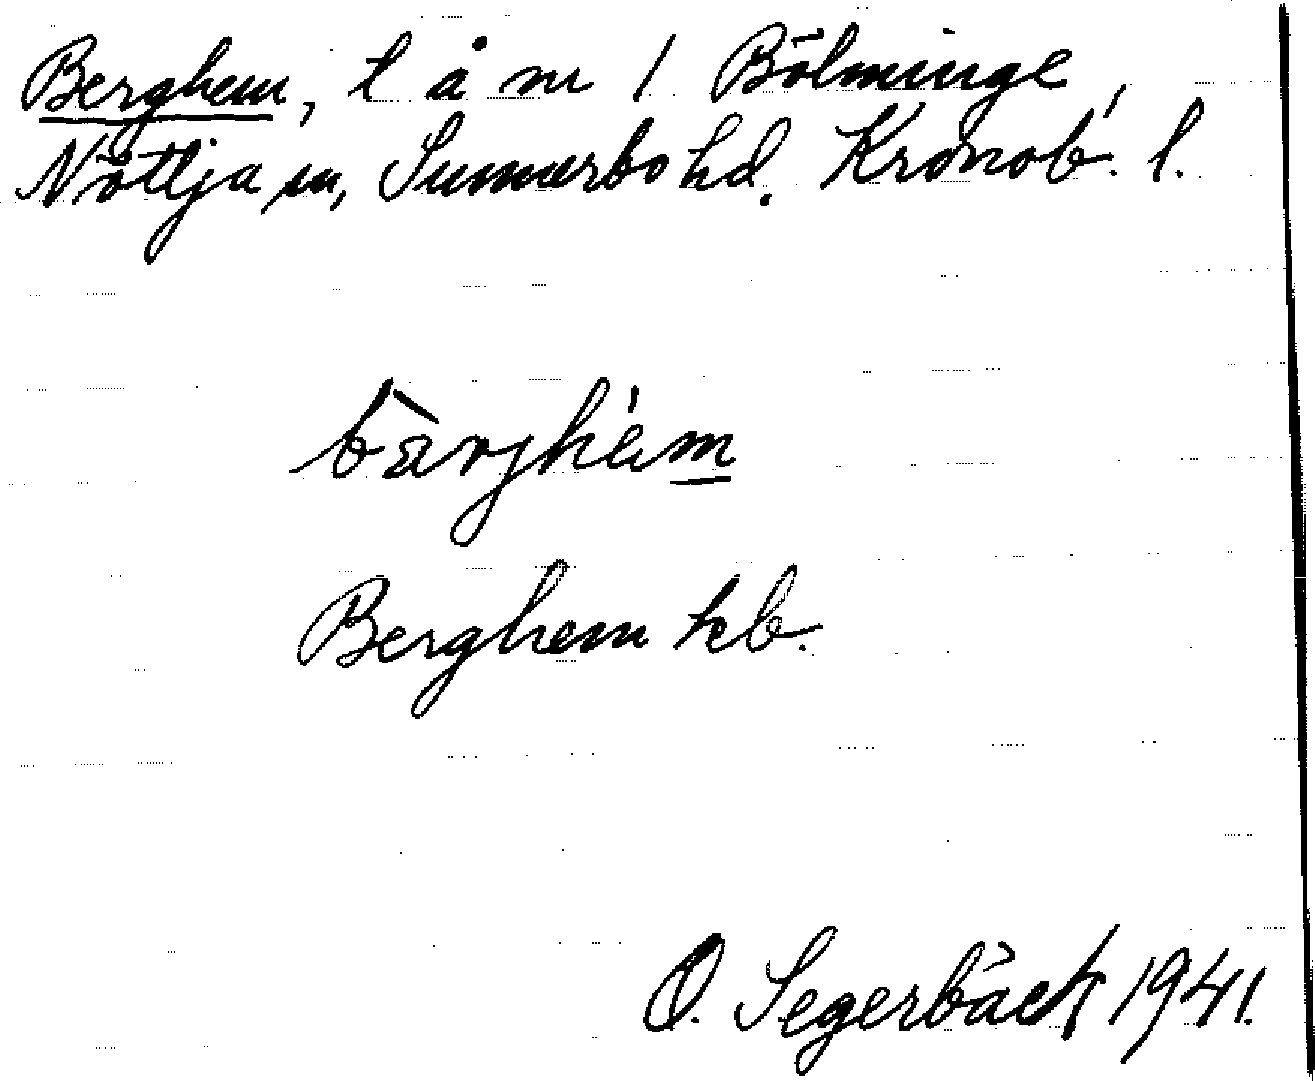 Berghem, t å nr 1 Bölminge,
Nöttja sn, Sunnerbo hd. Kronob. l.
bàrjhém
Berghem kb.
O. Segerbäck 1941.